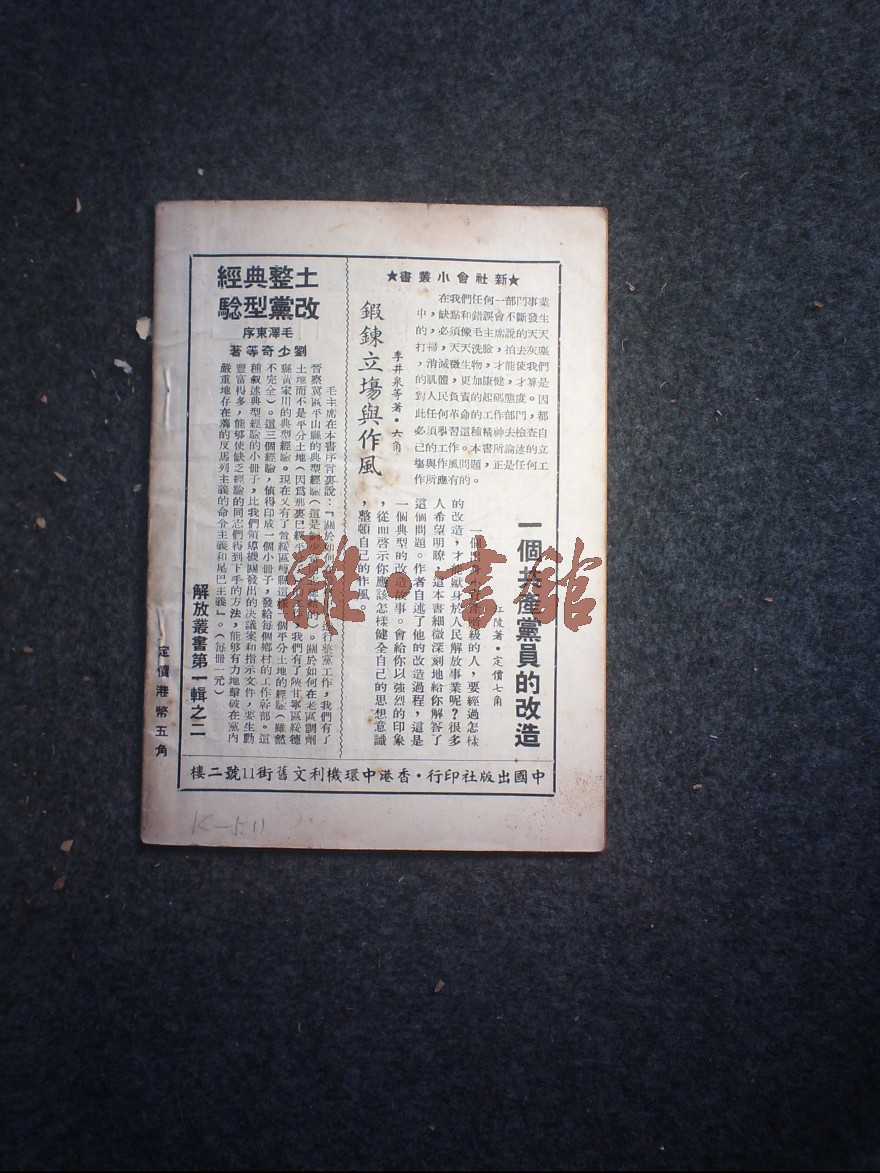 ★新社會小叢書★
在我們任何一部門事業
中，缺點和錯誤會不斷發生
的，必須像毛主席說的天天
打掃，天天洗臉，拍去灰塵
，消滅微生物，才能使我們
的肌體，更加康健，才算是
對人民負責的起碼態度。因
此任何革命的工作部門，都
必須學習這種精神去檢查自
己的工作。本書所論述的立
場與作風問題，正是任何工
作所應有的。
鍛鍊立場與作風
李井泉等著·六角
一個共產黨員的改造
江陵著·定價七角
級的人，要經過怎樣
的改造，才能獻身於人民解放事業呢？很多
人希望明瞭。這本書細微深刻地給你解答了
這個問題。作者自述了他的改造過程，這是
一個典型的改造故事。會給你以強烈的印象
，從而啓示你應該怎樣健全自己的思想意識
，整頓自己的作風。
土改
整黨
典型
經驗
毛澤東序
劉少奇等著
毛主席在本書序言裏說：『關於如何
進行整黨工作，我們有了
晉察冀區平山縣的典型經驗
關於如何在老區調劑
土地而不是平分土地（因爲那裏已經平
我們有了陝甘寧區綏德
縣黃家川的典型經驗。現在又有了晉綏區崞縣這樣一個平分土地的經驗（雖然
不完全）。這三個經驗，值得印成一個小冊子，發給每個鄉村的工作幹部。這
種叙述典型經驗的小冊子，比我們領導機關發出的決議案和指示文件，要生動
豐富得多，能够使缺乏經驗的同志們得到下手的方法，能够有力地擊破在黨內
嚴重地存在着的反馬列主義的命令主義和尾巴主義』。（每冊一元）
中國出版社印行·香港中環機利文舊街11號二樓
解放叢書第一輯之三
定價港幣五角
K—511
雜·書館